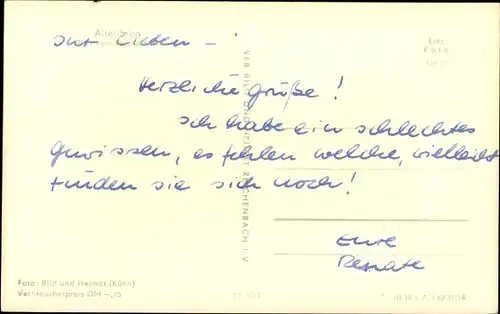 Altenburg
Echt
Foto
Ihr Lieben –
Herzliche Grüße!
Ich habe ein schlechtes
Gewissen, es fehlen welche, vielleicht
finden sie sich noch!
Eure
Renate
VEB BILD UND HEIMAT REICHENBACH I. V.
Foto: Bild und Heimat (Kühn)
Verbraucherpreis DM –,25